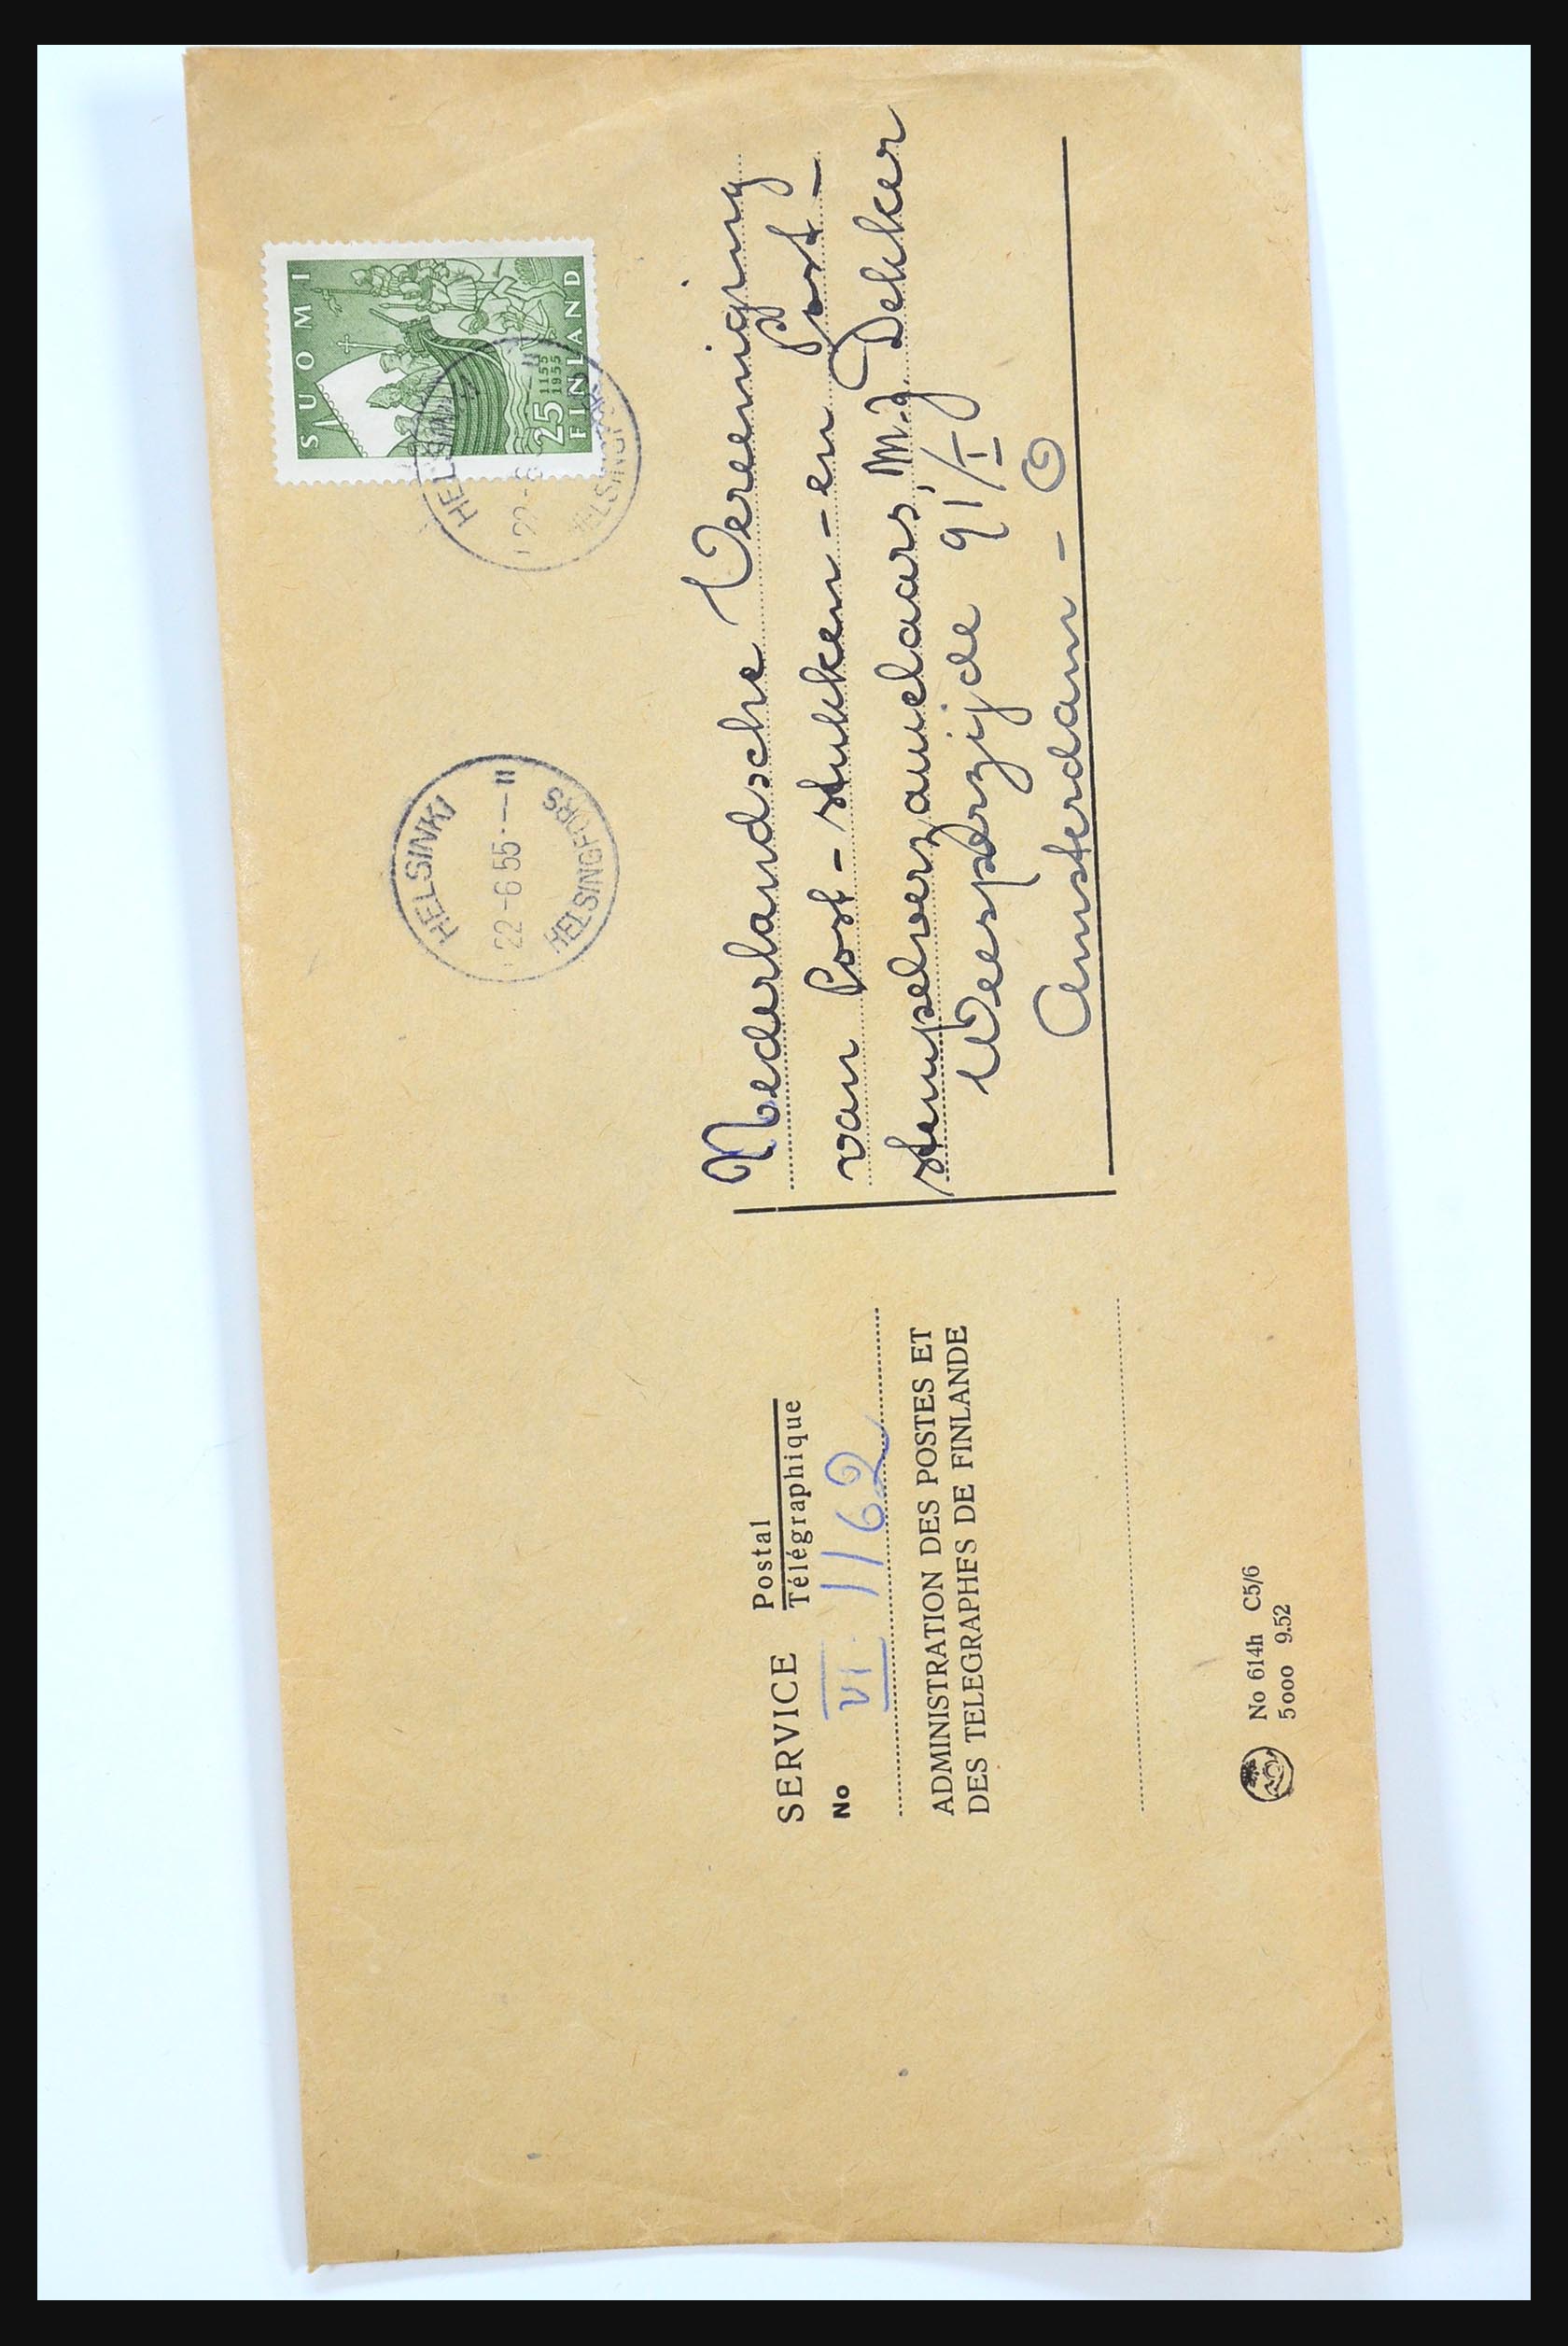 SUOMI
25 1155
1955
FINLAND
HELSINKI
22-6
HELSINGFORS
HELSINKI
22-6 55·—11
HELSINGFORS
Nederlandsche Vereeniging
van Post-stukken-en Post-
stempelverzamelaars, M.J. Dekker
Weesperzijde 91/I
Amsterdam - O
SERVICE Postal
Télégraphique
No VI 1162
ADMINISTRATION DES POSTES ET
DES TELEGRAPHES DE FINLANDE
No 614h C5/6
5000 9.52